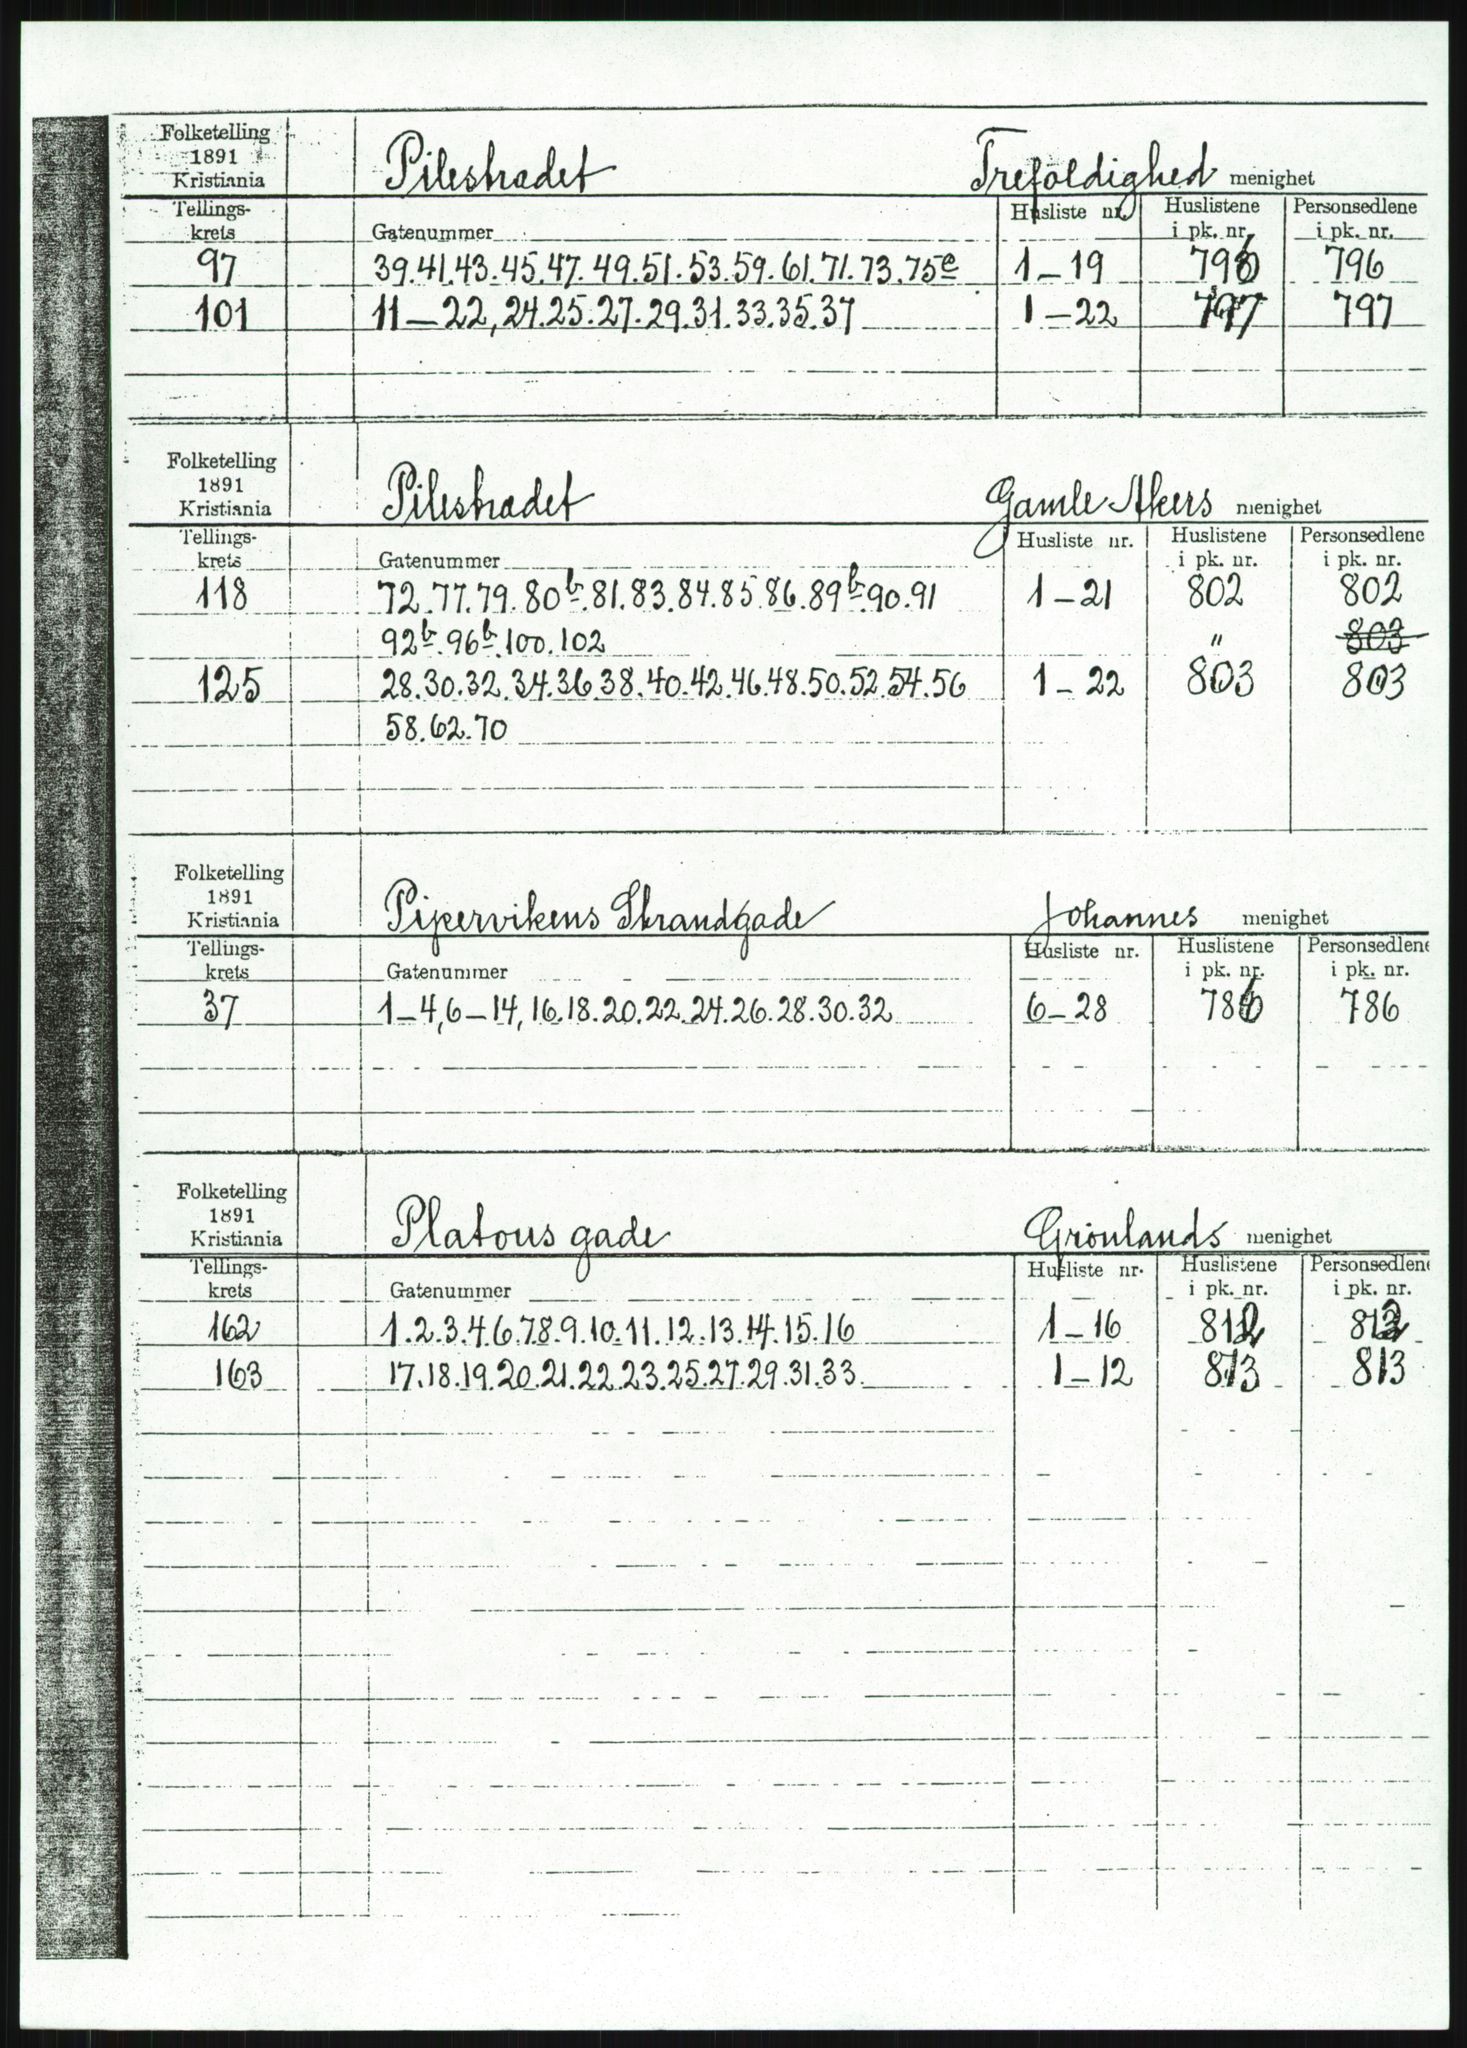 Folketelling
1891
Kristiania
Pilestrædet Trefoldighed menighet
Tellings-
krets Gatenummer Husliste nr. Huslistene i pk. nr. Personsedlene i pk. nr.
97 39.41.43.45.47.49.51.53.59.61.71.73.75e 1-19 796 796
101 11-22, 24.25.27.29.31.33.35.37 1-22 797 797
Folketelling
1891
Kristiania
Pilestrædet Gamle Akers menighet
Tellings-
krets Gatenummer Husliste nr. Huslistene i pk. nr. Personsedlene i pk. nr.
118 72.77.79.80b.81.83.84.85.86.89b.90.91 1-21 802 802
92b.96b.100.102 " 803
125 28.30.32.34.36.38.40.42.46.48.50.52.54.56 1-22 803 803
58.62.70
Folketelling
1891
Kristiania
Pipervikens Strandgade Johannes menighet
Tellings-
krets Gatenummer Husliste nr. Huslistene i pk. nr. Personsedlene i pk. nr.
37 1-4, 6-14, 16.18.20.22.24.26.28.30.32 6-28 786 786
Folketelling
1891
Kristiania
Platous gade Grønlands menighet
Tellings-
krets Gatenummer Husliste nr. Huslistene i pk. nr. Personsedlene i pk. nr.
162 1.2.3.4.6.7.8.9.10.11.12.13.14.15.16 1-16 812 812
163 17.18.19.20.21.22.23.25.27.29.31.33 1-12 813 813